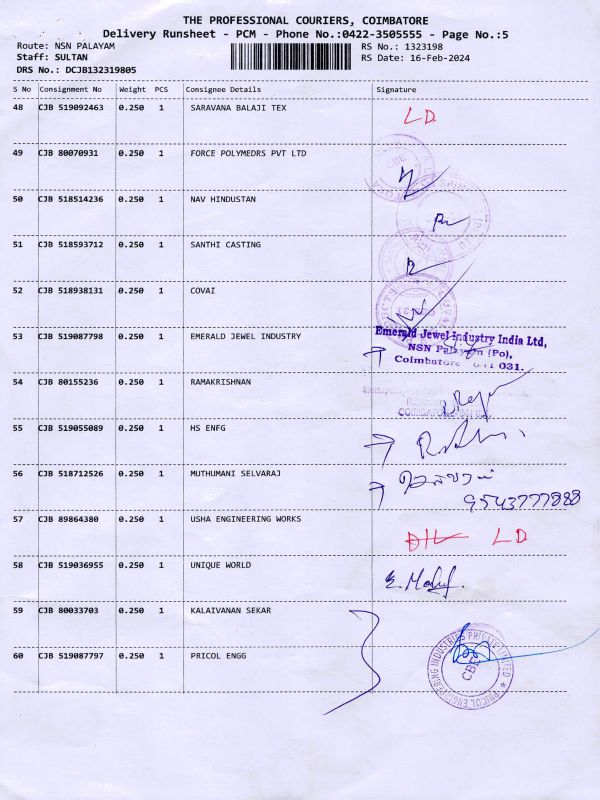 THE PROFESSIONAL COURIERS, COIMBATORE
Delivery Runsheet - PCM - Phone No.:0422-3505555 - Page No.:5
Route: NSN PALAYAM
RS No.: 1323198
Staff: SULTAN
RS Date: 16-Feb-2024
DRS No.: DCJB132319805
S No Consignment No Weight PCS Consignee Details Signature
48 CJB 519092463 0.250 1 SARAVANA BALAJI TEX LD
49 CJB 80070931 0.250 1 FORCE POLYMEDRS PVT LTD
50 CJB 518514236 0.250 1 NAV HINDUSTAN
51 CJB 518593712 0.250 1 SANTHI CASTING
52 CJB 518938131 0.250 1 COVAI
53 CJB 519087798 0.250 1 EMERALD JEWEL INDUSTRY
Emerald Jewel Industry India Ltd,
NSN Palayam (Po),
Coimbatore 641 031.
54 CJB 80155236 0.250 1 RAMAKRISHNAN
55 CJB 519055089 0.250 1 HS ENFG
56 CJB 518712526 0.250 1 MUTHUMANI SELVARAJ
9543777888
57 CJB 89864380 0.250 1 USHA ENGINEERING WORKS LD
58 CJB 519036955 0.250 1 UNIQUE WORLD
59 CJB 80033703 0.250 1 KALAIVANAN SEKAR
60 CJB 519087797 0.250 1 PRICOL ENGG
PRICOL ENGINEERING INDUSTRIES PRIVATE LIMITED
CBE